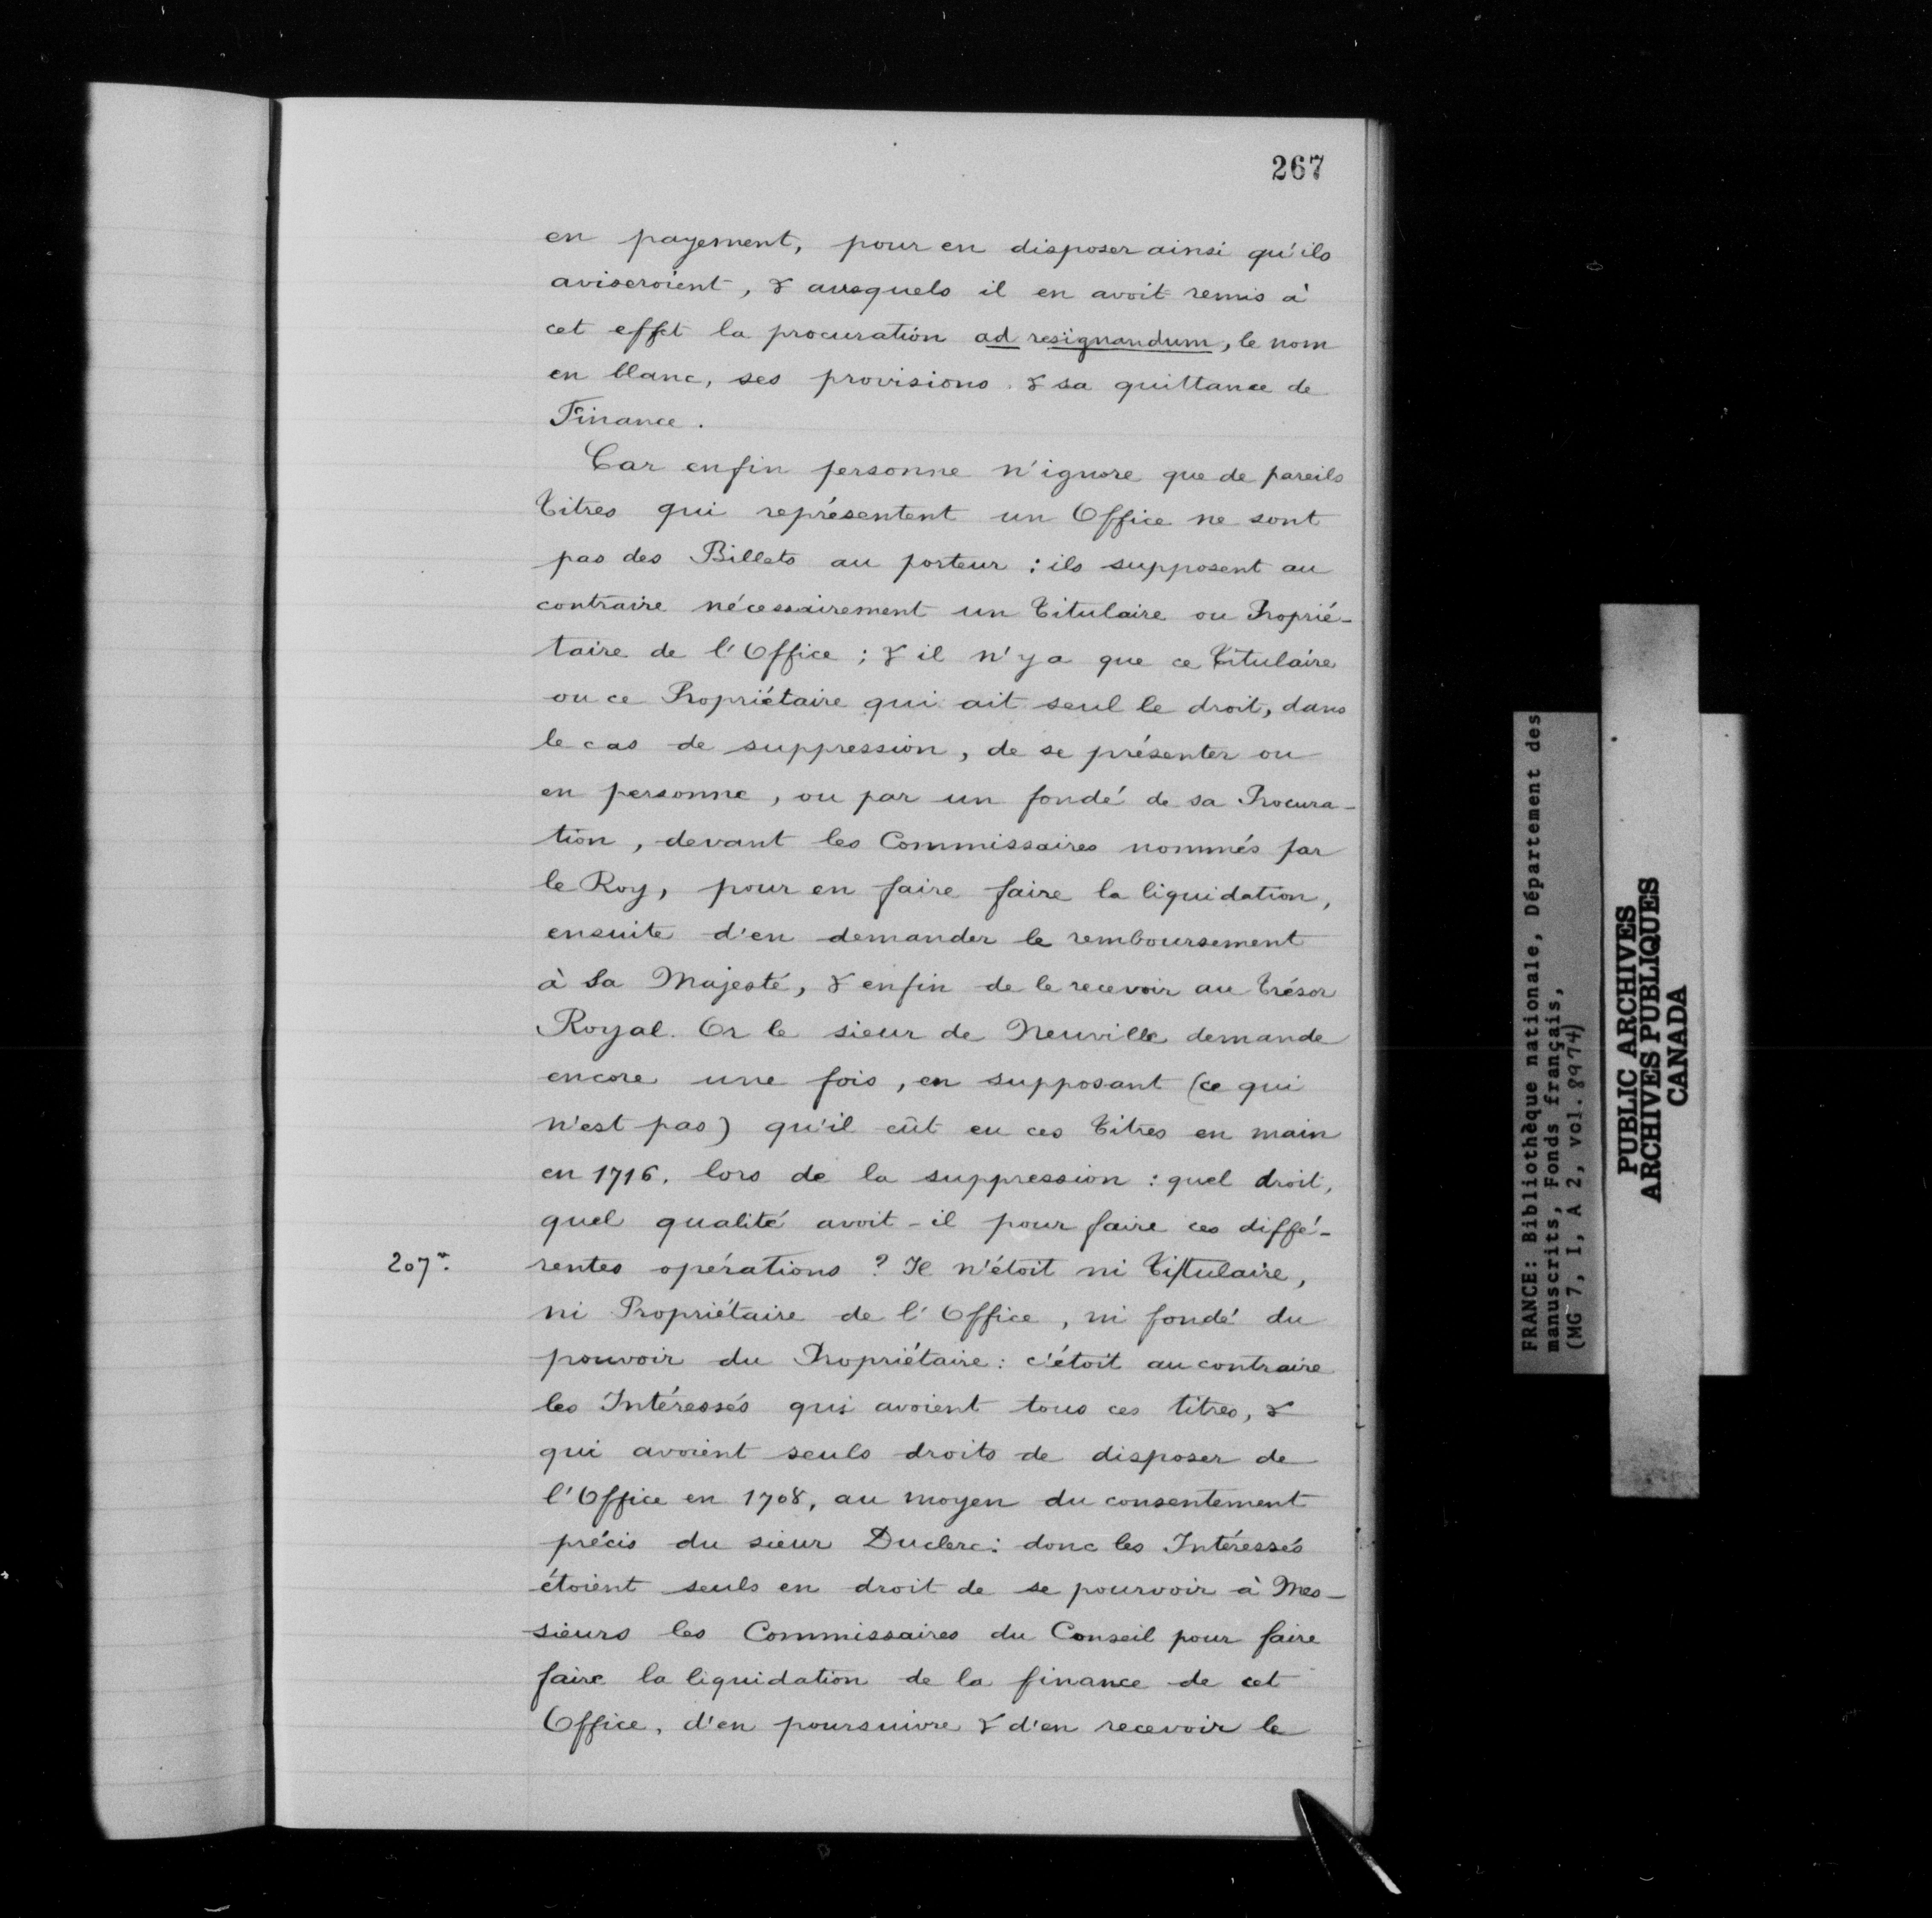 267
en payement, pour en disposer ainsi qu'ils
aviseroient, & ausquels il en avoit remis à
cet effet la procuration ad resignandum, le nom
en blanc, ses provisions & sa quittance de
Finance.
Car enfin personne n'ignore que de pareils
Titres qui représentent un Office ne sont
pas des Billets au porteur : ils supposent au
contraire nécessairement un Titulaire ou Proprié-
taire de l'Office ; & il n'y a que ce Titulaire
ou ce Propriétaire qui ait seul le droit, dans
le cas de suppression, de se présenter ou
en personne, ou par un fondé de sa Procura-
tion, devant les Commissaires nommés par
le Roy, pour en faire faire la liquidation,
ensuite d'en demander le remboursement
à Sa Majesté, & enfin de le recevoir au Trésor
Royal. Or le sieur de Neuville demande
encore une fois, en supposant (ce qui
n'est pas) qu'il eût eu ces Titres en main
en 1716. lors de la suppression : quel droit,
quel qualité avoit-il pour faire ces diffé-
207. rentes opérations ? Il n'étoit ni Ti/tulaire,
ni Propriétaire de l'Office, ni fondé du
pouvoir du Propriétaire : c'étoit au contraire
les Intéressés qui avoient tous ces titres, &
qui avoient seuls droits de disposer de
l'Office en 1708, au moyen du consentement
précis du sieur Duclerc : donc les Intéressés
étoient seuls en droit de se pourvoir à Mes-
sieurs les Commissaires du Conseil pour faire
faire la liquidation de la finance de cet
Office, d'en poursuivre & d'en recevoir le
FRANCE: Bibliothèque nationale, Département des
manuscrits, Fonds français,
(MG 7, I, A 2, vol. 8974)
PUBLIC ARCHIVES
ARCHIVES PUBLIQUES
CANADA